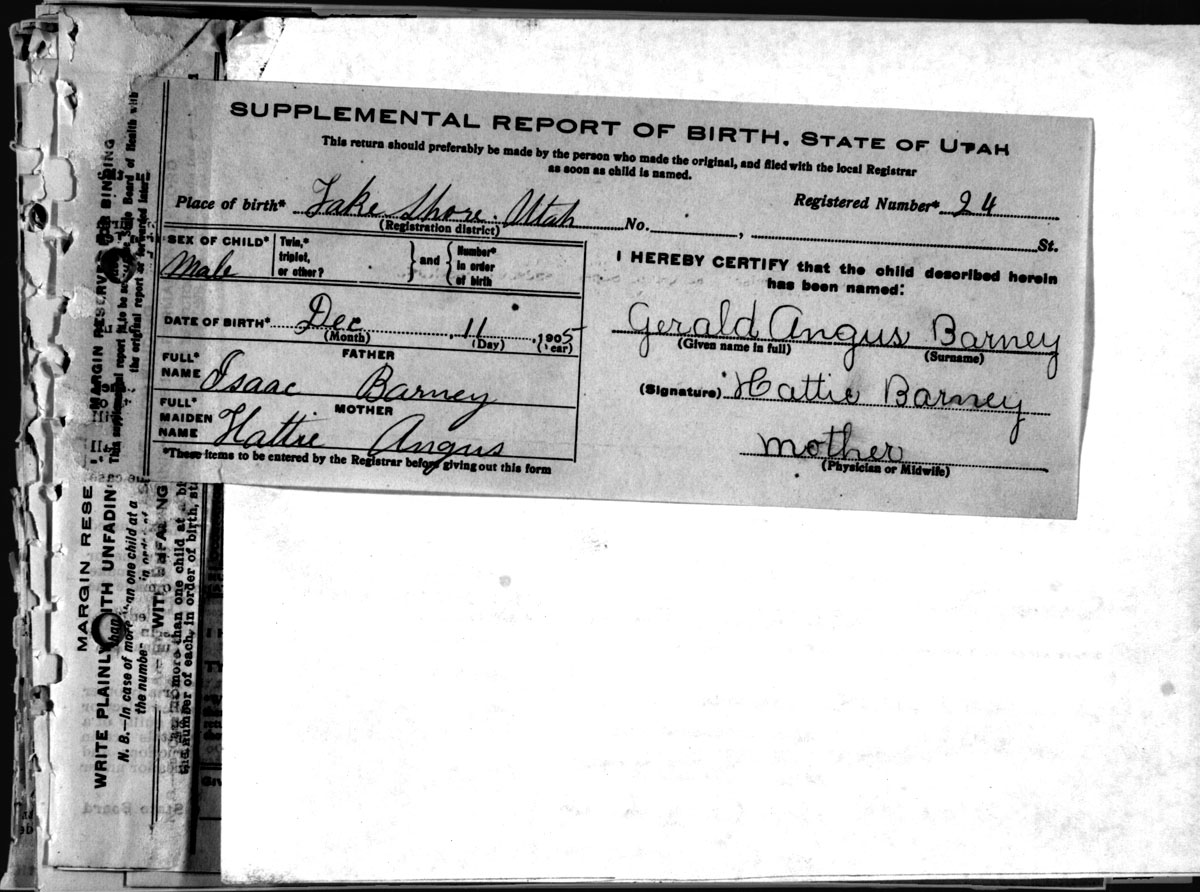 SUPPLEMENTAL REPORT OF BIRTH, STATE OF UTAH
This return should preferably be made by the person who made the original, and filed with the local Registrar
as soon as child is named.
Place of birth* Lake Shore. Utah No. , St.
(Registration district)
Registered Number* 24
SEX OF CHILD* Male
Twin,* triplet, or other? } and { Number* in order of birth
DATE OF BIRTH* Dec 11 1905
(Month) (Day) (Year)
FATHER
FULL* NAME Isaac Barney
MOTHER
FULL* MAIDEN NAME Hattie Angus
*These items to be entered by the Registrar before giving out this form
I HEREBY CERTIFY that the child described herein
has been named:
Gerald Angus Barney
(Given name in full) (Surname)
(Signature) Hattie Barney
mother
(Physician or Midwife)
MARGIN RESERVED FOR BINDING
This supplemental report is to be
State Board of Health with
the original report
MARGIN RESE
WRITE PLAINLY WITH UNFADIN
N. B.—In case of more than one child at a
the number in order of
WITH UNFADING
more than one child at a bi
number of each, in order of birth, st